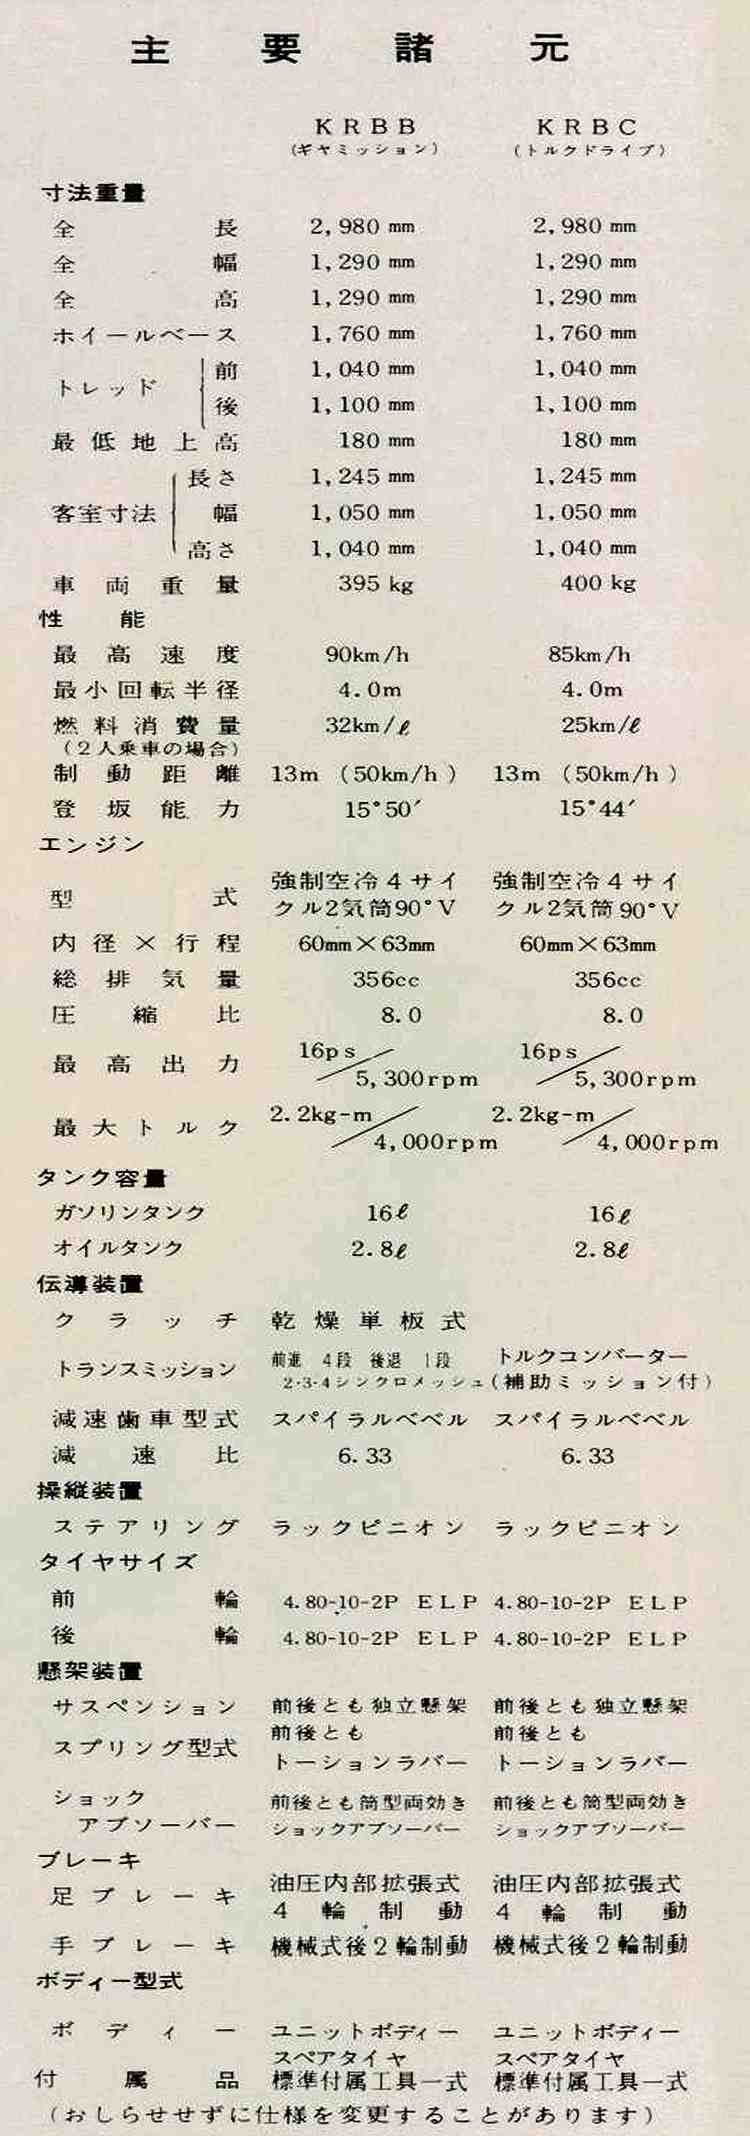 主要諸元
KRBB KRBC
(ギヤミッション) (トルクドライブ)
寸法重量
全長 2,980 mm 2,980 mm
全幅 1,290 mm 1,290 mm
全高 1,290 mm 1,290 mm
ホイールベース 1,760 mm 1,760 mm
トレッド 前 1,040 mm 1,040 mm
後 1,100 mm 1,100 mm
最低地上高 180 mm 180 mm
客室寸法 長さ 1,245 mm 1,245 mm
幅 1,050 mm 1,050 mm
高さ 1,040 mm 1,040 mm
車両重量 395 kg 400 kg
性能
最高速度 90km/h 85km/h
最小回転半径 4.0m 4.0m
燃料消費量 32km/ℓ 25km/ℓ
(2人乗車の場合)
制動距離 13m (50km/h) 13m (50km/h)
登坂能力 15°50′ 15°44′
エンジン
型式 強制空冷4サイ 強制空冷4サイ
クル2気筒90°V クル2気筒90°V
内径×行程 60mm×63mm 60mm×63mm
総排気量 356cc 356cc
圧縮比 8.0 8.0
最高出力 16ps/5,300rpm 16ps/5,300rpm
最大トルク 2.2kg-m/4,000rpm 2.2kg-m/4,000rpm
タンク容量
ガソリンタンク 16ℓ 16ℓ
オイルタンク 2.8ℓ 2.8ℓ
伝導装置
クラッチ 乾燥単板式
トランスミッション 前進 4段 後退 1段 トルクコンバーター
2・3・4シンクロメッシュ (補助ミッション付)
減速歯車型式 スパイラルベベル スパイラルベベル
減速比 6.33 6.33
操縦装置
ステアリング ラックピニオン ラックピニオン
タイヤサイズ
前輪 4.80-10-2P ELP 4.80-10-2P ELP
後輪 4.80-10-2P ELP 4.80-10-2P ELP
懸架装置
サスペンション 前後とも独立懸架 前後とも独立懸架
スプリング型式 前後とも 前後とも
トーションラバー トーションラバー
ショック 前後とも筒型両効き 前後とも筒型両効き
アブソーバー ショックアブソーバー ショックアブソーバー
ブレーキ
足ブレーキ 油圧内部拡張式 油圧内部拡張式
4輪制動 4輪制動
手ブレーキ 機械式後2輪制動 機械式後2輪制動
ボディー型式
ボディー ユニットボディー ユニットボディー
スペアタイヤ スペアタイヤ
付属品 標準付属工具一式 標準付属工具一式
(おしらせせずに仕様を変更することがあります)